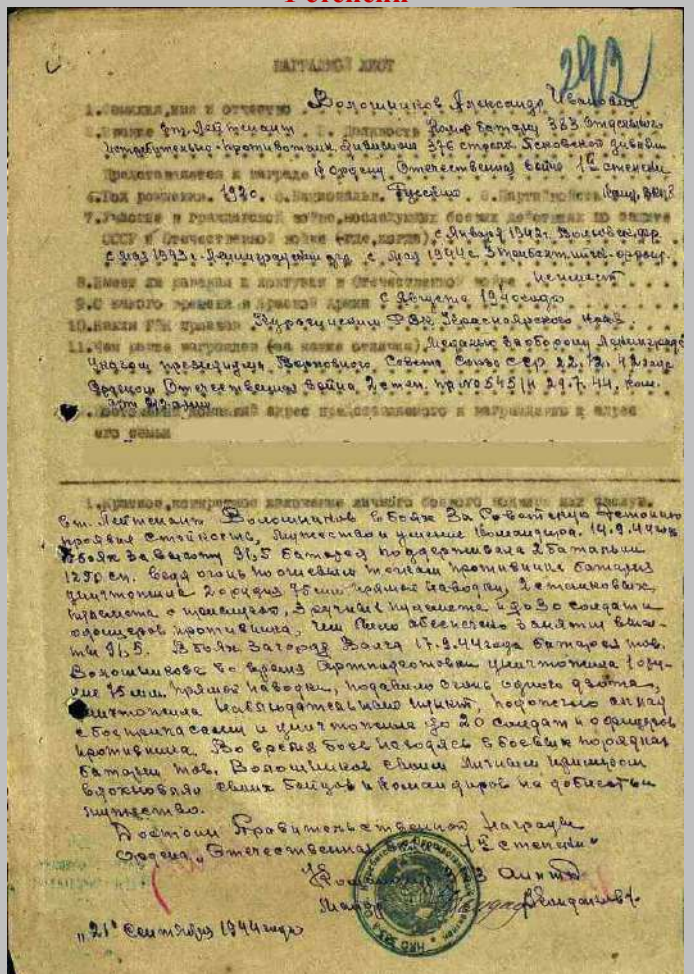 НАГРАДНОЙ ЛИСТ
292
1. Фамилия, имя и отчество Волошников Александр Иванович
2. Звание ст. лейтенант 3. Должность Ком-р батареи 383 отдельного
истребительно-противотанк. дивизиона 376 стрелк. Псковской дивизии
Представляется к награде ордену Отечественной войны 1й степени
4. Год рождения 1920 5. Национальн. Русский 6. Партийность
7. Участие в гражданской войне, последующих боевых действиях по защите
СССР и Отечественной войне (где, когда) с января 1942г. Волховск. фр.
с мая 1943г. Ленинградский фр. с мая 1944г. 3 Прибалтийск. фронт.
8. Имеет ли ранения и контузии в Отечественной войне не имеет
9. С какого времени в Красной Армии с августа 1940 года
10. Каким РВК призван Курагинским РВК Красноярского края
11. Чем ранее награжден (за какие отличия) Медалью за оборону Ленинграда
указом президиума Верховного Совета Союза ССР 22.12.42 года
Орденом Отечественная война 2 степ. пр. № 0545/н 29.7.44,
12. Постоянный домашний адрес представляемого к награждению и адрес
его семьи
1. Краткое, конкретное изложение личного боевого подвига или заслуг.
Ст. лейтенант Волошников в боях за Советскую Эстонию
проявил стойкость, мужество и умение командира. 14.9.44 года
в боях за высоту 91,5 батарея поддерживала 2 батальон
1250 сп. Ведя огонь по огневым точкам противника батарея
уничтожила 2 орудия 75 мм прямой наводки, 2 станковых
пулемета с прислугой, 3 ручных пулемета и до 30 солдат и
офицеров противника, чем было обеспечено занятие высо-
ты 91,5. В боях за город Валга 17.9.44 года батарея тов.
Волошникова во время артподготовки уничтожила 1 ору-
дие 75 мм. прямой наводки, подавила огонь одного дзота,
уничтожила наблюдательный пункт, подожгла склад
с боеприпасами и уничтожила до 20 солдат и офицеров
противника. Во время боев находясь в боевых порядках
батареи тов. Волошников своим личным примером
вдохновлял своих бойцов и командиров на доблесть и
мужество.
Достоин Правительственной награды
ордена „Отечественная 1й степени"
Майор
„21" сентября 1944 года